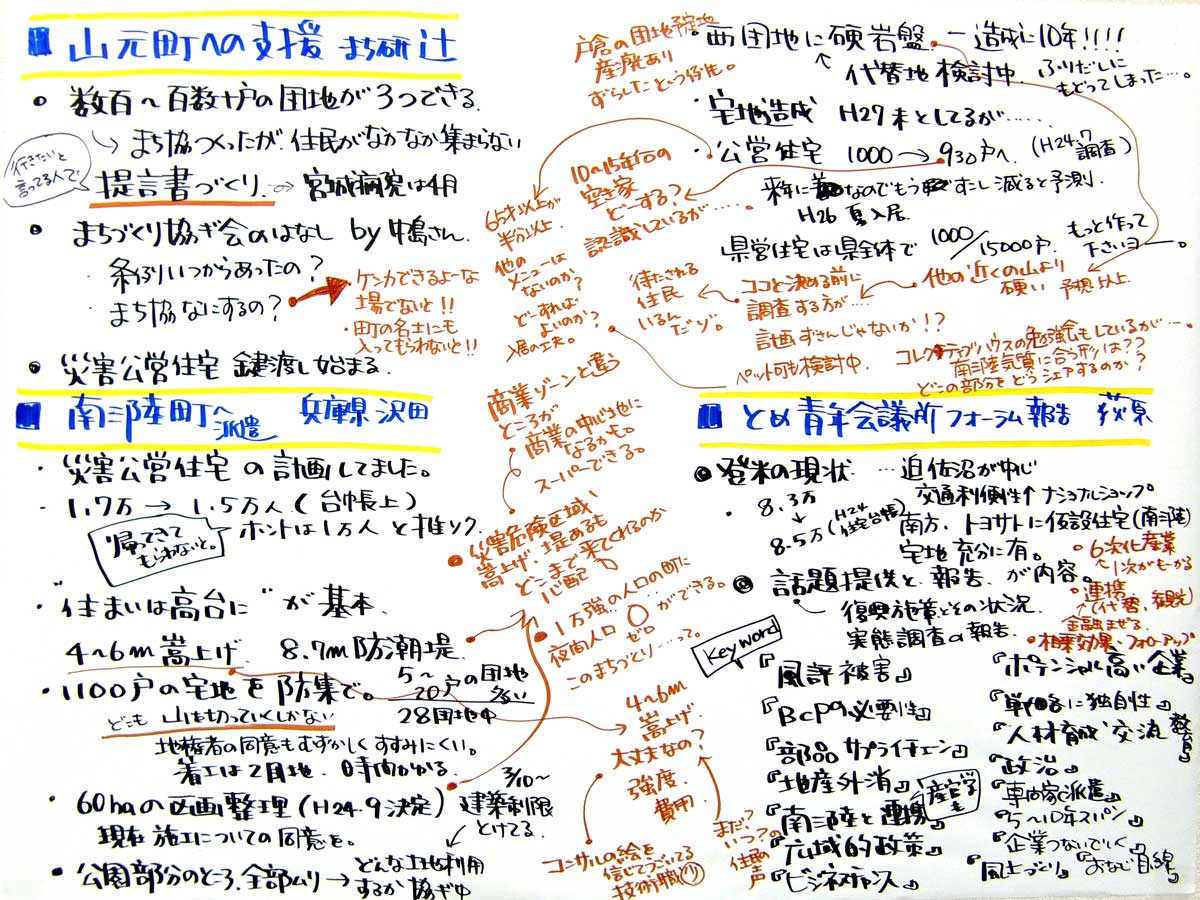 山元町への支援 まち研 辻
・数百〜百数十戸の団地が3つできる.
→まち協つくったが、住民がなかなか集まらない
行きたいと
言ってる人で
提言書づくり. ⇒ 宮城病院は4月
・まちづくり協ギ会のはなし by 中島さん.
・条例いつからあったの?
・まち協なにするの?
・ケンカできるよーな
場でないと!!
・田町の名士にも
入ってもらわないと!!
・災害公営住宅 鍵渡し始まる.
南三陸町へ派遣 兵庫県 沢田
・災害公営住宅の計画してました。
1.7万→1.5万人(台帳上)
ホントは1万人と推ソク.
帰ってきて
もらわないと。
・住まいは高台に"が基本.
4~6m嵩上げ 8.7m防潮堤.
・1100戸の宅地を防集で。
5~20戸の団地
多い
28団地中
どこも山を切っていくしかない
地権者の同意もむずかしくすすみにくい。
着工は2団地. 時間かかる.
・60haの区画整理(H24.9決定)
3/10~
建築制限
とけてる.
現在施工についての同意を。
・公園部分のところ、全部ムリ→どんな土地利用
するか協ギ中
戸倉の団地予定地
産廃あり
ずらしたという経緯も。
・西団地に硬岩盤. ー造成に10年!!!!
代替地検討中.
ふりだしに
もどってしまった…。
・宅地造成 H27末としてるが……
・公営住宅 1000→930戸へ.
(H24.7
調査)
来年に なのでもうすこし減ると予測.
H26 夏入居.
県営住宅は県全体で 1000/15000戸.
もっと作って
下さいヨー。
10~15年后の
空き家
どーする?
認識しているが……
65才以上が
半分以上.
他の
メニューは
ないのか?
どーすれば
よいのか?
入居の工夫。
待たされる
住民
いるん
だゾ。
ココと決める前に
調査する方が…
計画ずさんじゃないか!?
他の近くの山より
硬い 予想以上.
ペット可も検討中.
コレクティブハウスの勉強会もしているが…
南三陸気質に合う形は??
どこの部分をどうシェアするのか?
商業ゾーンと違う
ところが
商業の中心地に
なるかも。
スーパーできる。
・災害危険区域い
嵩上げ、堤あるも
どこまで来てくれるのか
心配
・1万強の人口の町に
夜間人口 0 ゼロ
…ができる。
このまちづくり…って。
4~6m
嵩上げ
大丈夫なの?
強度.
費用.
まだ?
いつ?の
住民の
声
コンサルの絵を
信じてつくいでいる
技術職
とめ青年会議所フォーラム報告 荻原
◎登米の現状 …迫佐沼が中心
・8.3万
↓
8.5万(H24
住宅台帳)
交通利便性↑ ナショナルショップ。
南方、トヨサトに仮設住宅(南三陸)
宅地充分に有。
◎話題提供と、報告.が内容。
復興施策とその状況.
実態調査の報告.
・6次化産業
↑1次がもうかる
・連携
↑(代替、観光)
金融まぜる.
・相乗効果、フォローアップ
Key word
『風評被害』
『BCPの必要性』
『部品サプライチェーン』
『地産外消』
『南三陸と連携』
産官学も
『広域的政策』
『ビジネスチャンス』
『ポテンシャル高い企業』
『戦略に独自性』
『人材育成 交流 教育』
『政治』
『専門家派遣』
『5~10年スパン』
『企業つないでいく』
『風土づくり』『おなじ目線』